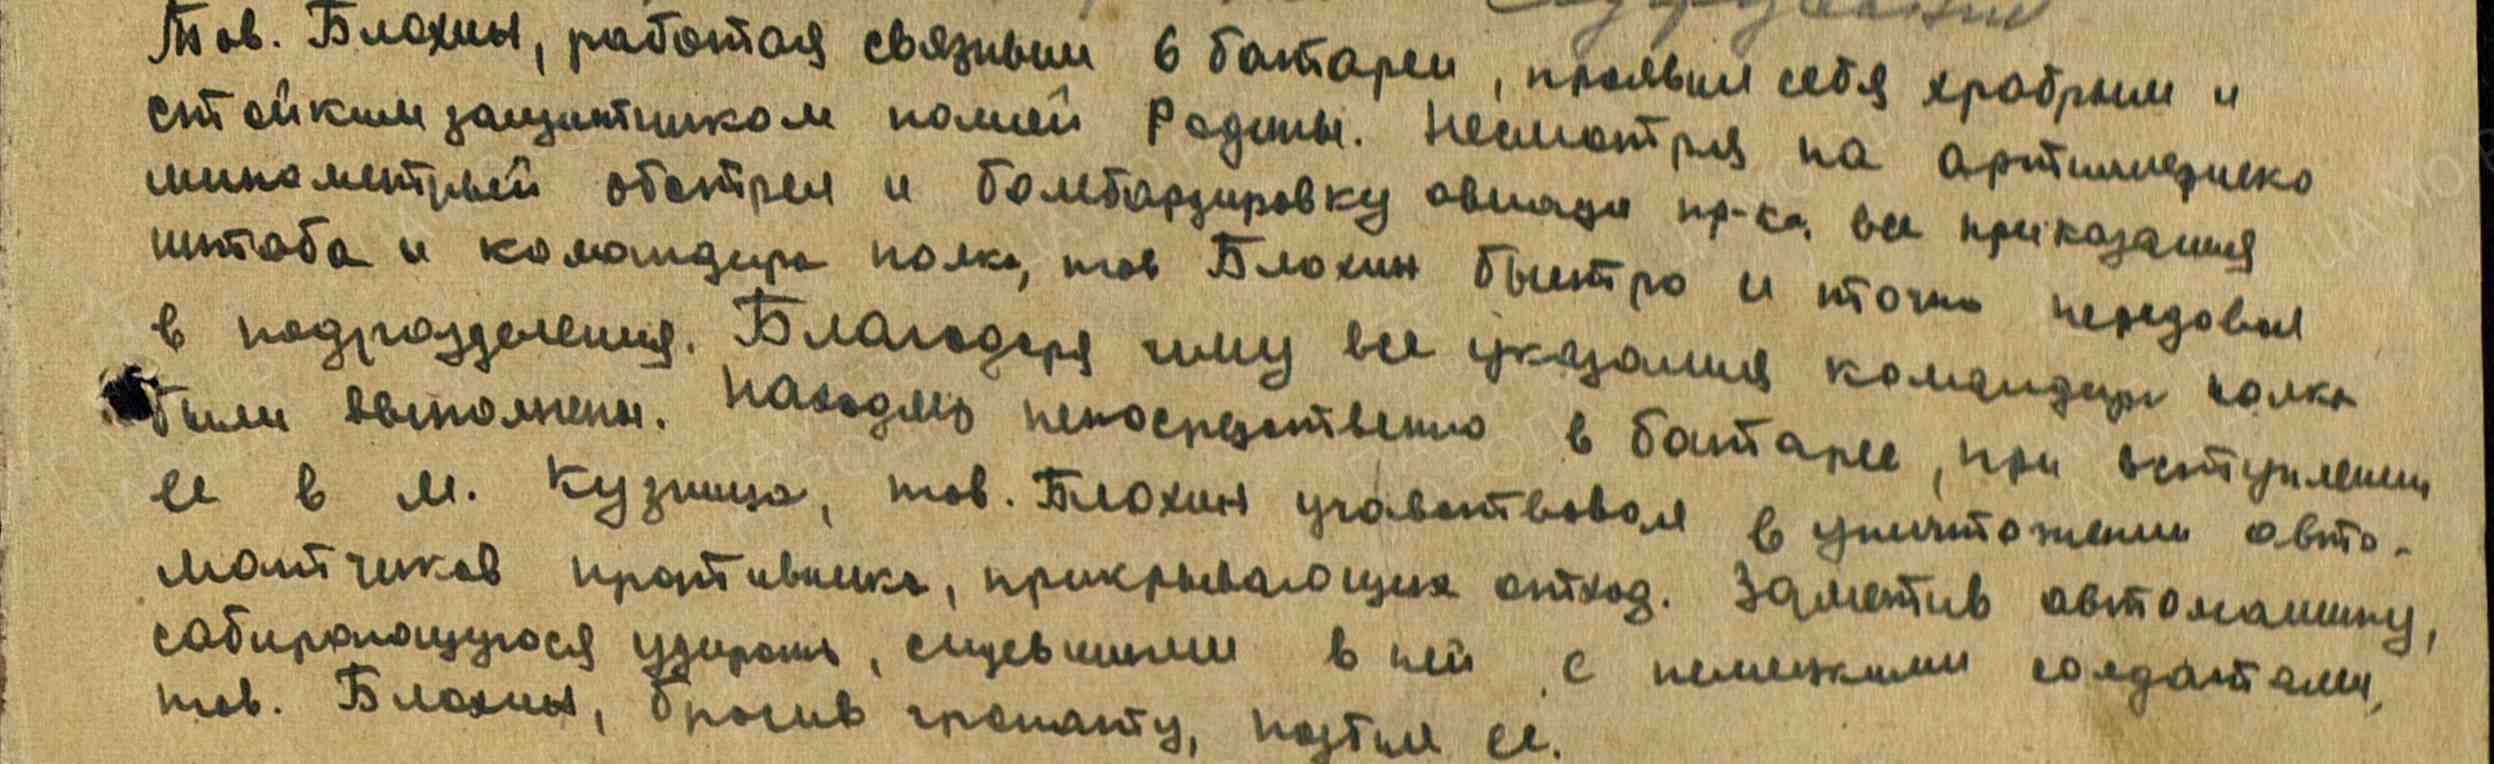 Тов. Блохин, работая связным 6 батареи, проявил себя храбрым и
стойким защитником нашей Родины. Несмотря на артиллерийско
минометный обстрел и бомбардировку авиации пр-ка, все приказания
штаба и командира полка, тов Блохин быстро и точно передавал
в подразделения. Благодаря чему все указания командира полка
были выполнены. Находясь непосредственно в батарее, при вступлении
ее в м. Кузница, тов. Блохин участвовал в уничтожении авто-
матчиков противника, прикрывающих отход. Заметив автомашину,
собирающуюся удирать, сидевшими в ней с немецкими солдатами,
тов. Блохин, бросив гранату, подбил ее.